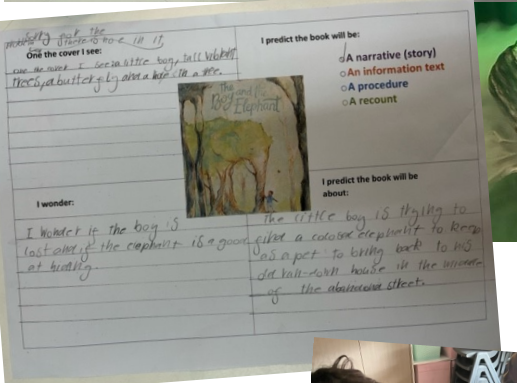 One the cover I see:
one the cover I see a little boy, tall
trees, a butterfly and a hole in a tree.
I predict the book will be:
A narrative (story)
An information text
A procedure
A recount
The
Boy and the
Elephant
I wonder:
I wonder if the boy is
lost and if the elephant is a good
at hiding.
I predict the book will be
about:
The little boy is trying to
find a colosal elephant to keep
as a pet to bring back to his
old run-down house in the
of the street.